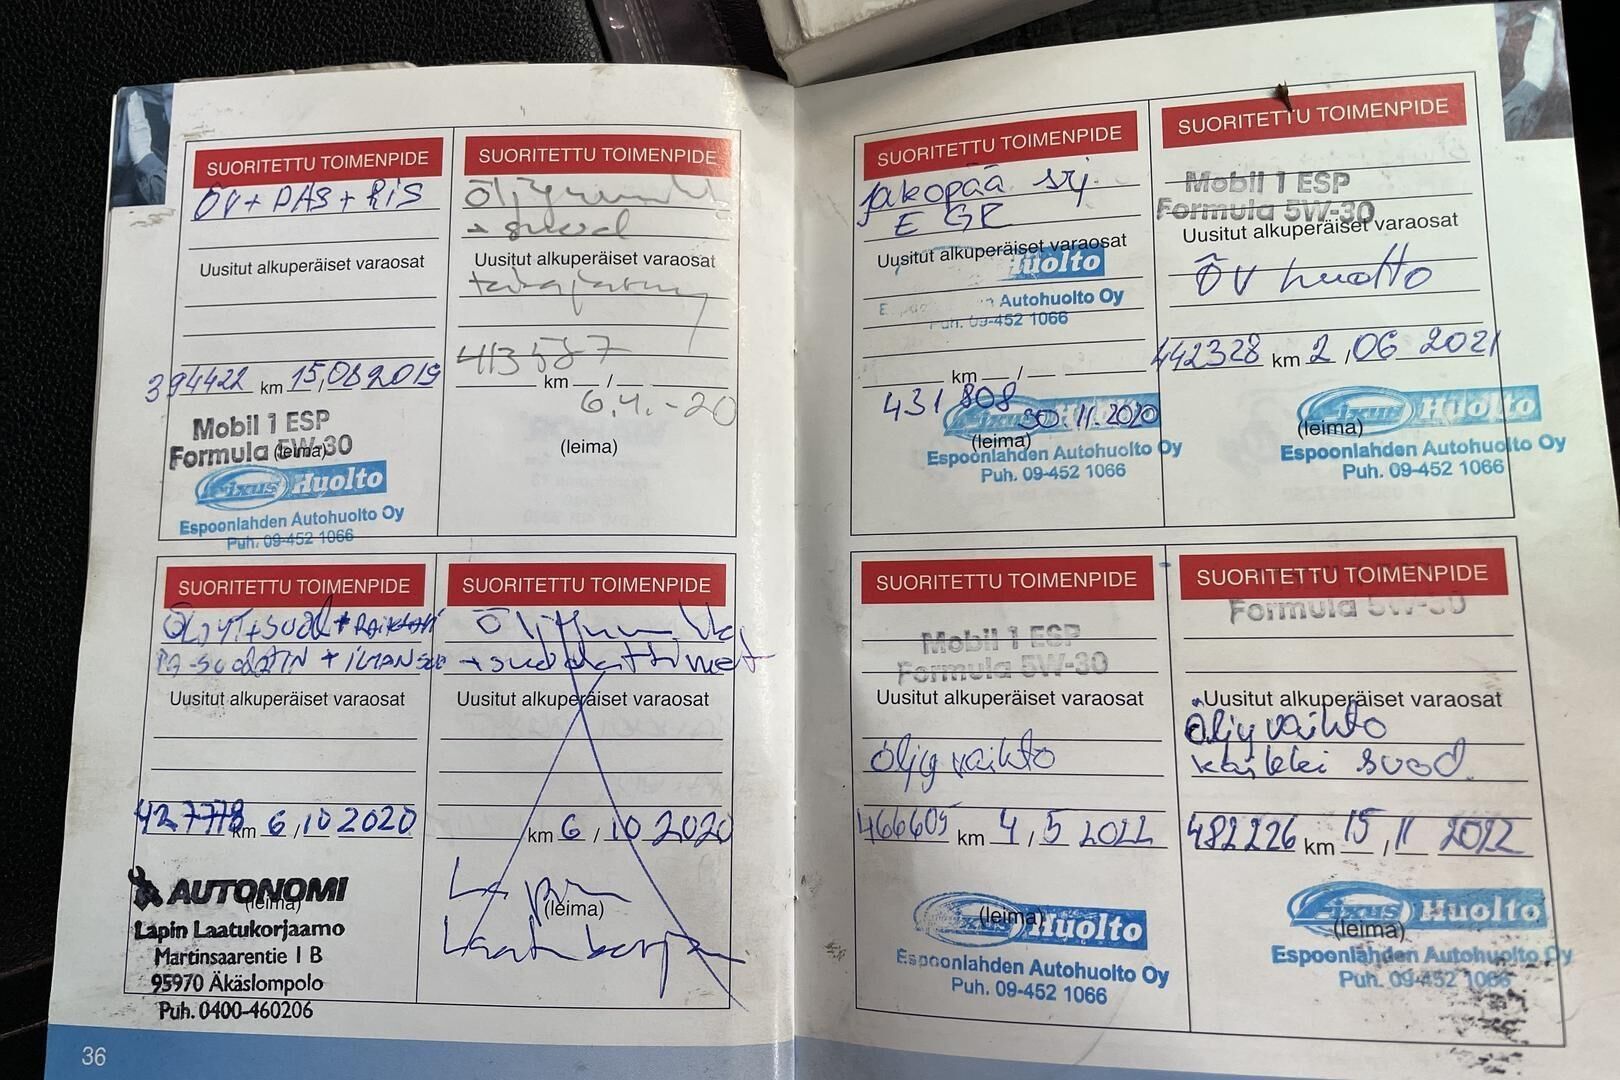 SUORITETTU TOIMENPIDE
ÖV + PAS + RIS
Uusitut alkuperäiset varaosat
394422 km 15,08 2019
Mobil 1 ESP
Formula 5W-30
(leima)
Fixus Huolto
Espoonlahden Autohuolto Oy
Puh. 09-452 1066
SUORITETTU TOIMENPIDE
+ suod
Uusitut alkuperäiset varaosat
413587
km / 
6.4.-20
(leima)
SUORITETTU TOIMENPIDE
ÖLJYT+SUOD+RAIKKARI
PA-SUODATIN + ILMANSUO
Uusitut alkuperäiset varaosat
427778 km 6,10 2020
AUTONOMI
(leima)
Lapin Laatukorjaamo
Martinsaarentie 1 B
95970 Äkäslompolo
Puh. 0400-460206
36
SUORITETTU TOIMENPIDE
+ suodattimet
Uusitut alkuperäiset varaosat
km 6, 10 2020
Lapin
(leima)
SUORITETTU TOIMENPIDE
Jakopää srj.
EGR
Uusitut alkuperäiset varaosat
Huolto
Autohuolto Oy
Puh. 09-452 1066
km /
431 808
30.11.2020
Fixus Huolto
(leima)
Espoonlahden Autohuolto Oy
Puh. 09-452 1066
SUORITETTU TOIMENPIDE
Mobil 1 ESP
Formula 5W-30
Uusitut alkuperäiset varaosat
ÖV huolto
442328 km 2,06 2021
Fixus Huolto
(leima)
Espoonlahden Autohuolto Oy
Puh. 09-452 1066
SUORITETTU TOIMENPIDE
Mobil 1 ESP
Formula 5W-30
Uusitut alkuperäiset varaosat
öljy vaihto
466605 km 4,5 2022
Fixus Huolto
(leima)
Espoonlahden Autohuolto Oy
Puh. 09-452 1066
SUORITETTU TOIMENPIDE
Formula 5W-30
Uusitut alkuperäiset varaosat
öljy vaihto
kaikki suod.
482226 km 15,11 2022
Fixus Huolto
(leima)
Espoonlahden Autohuolto Oy
Puh. 09-452 1066